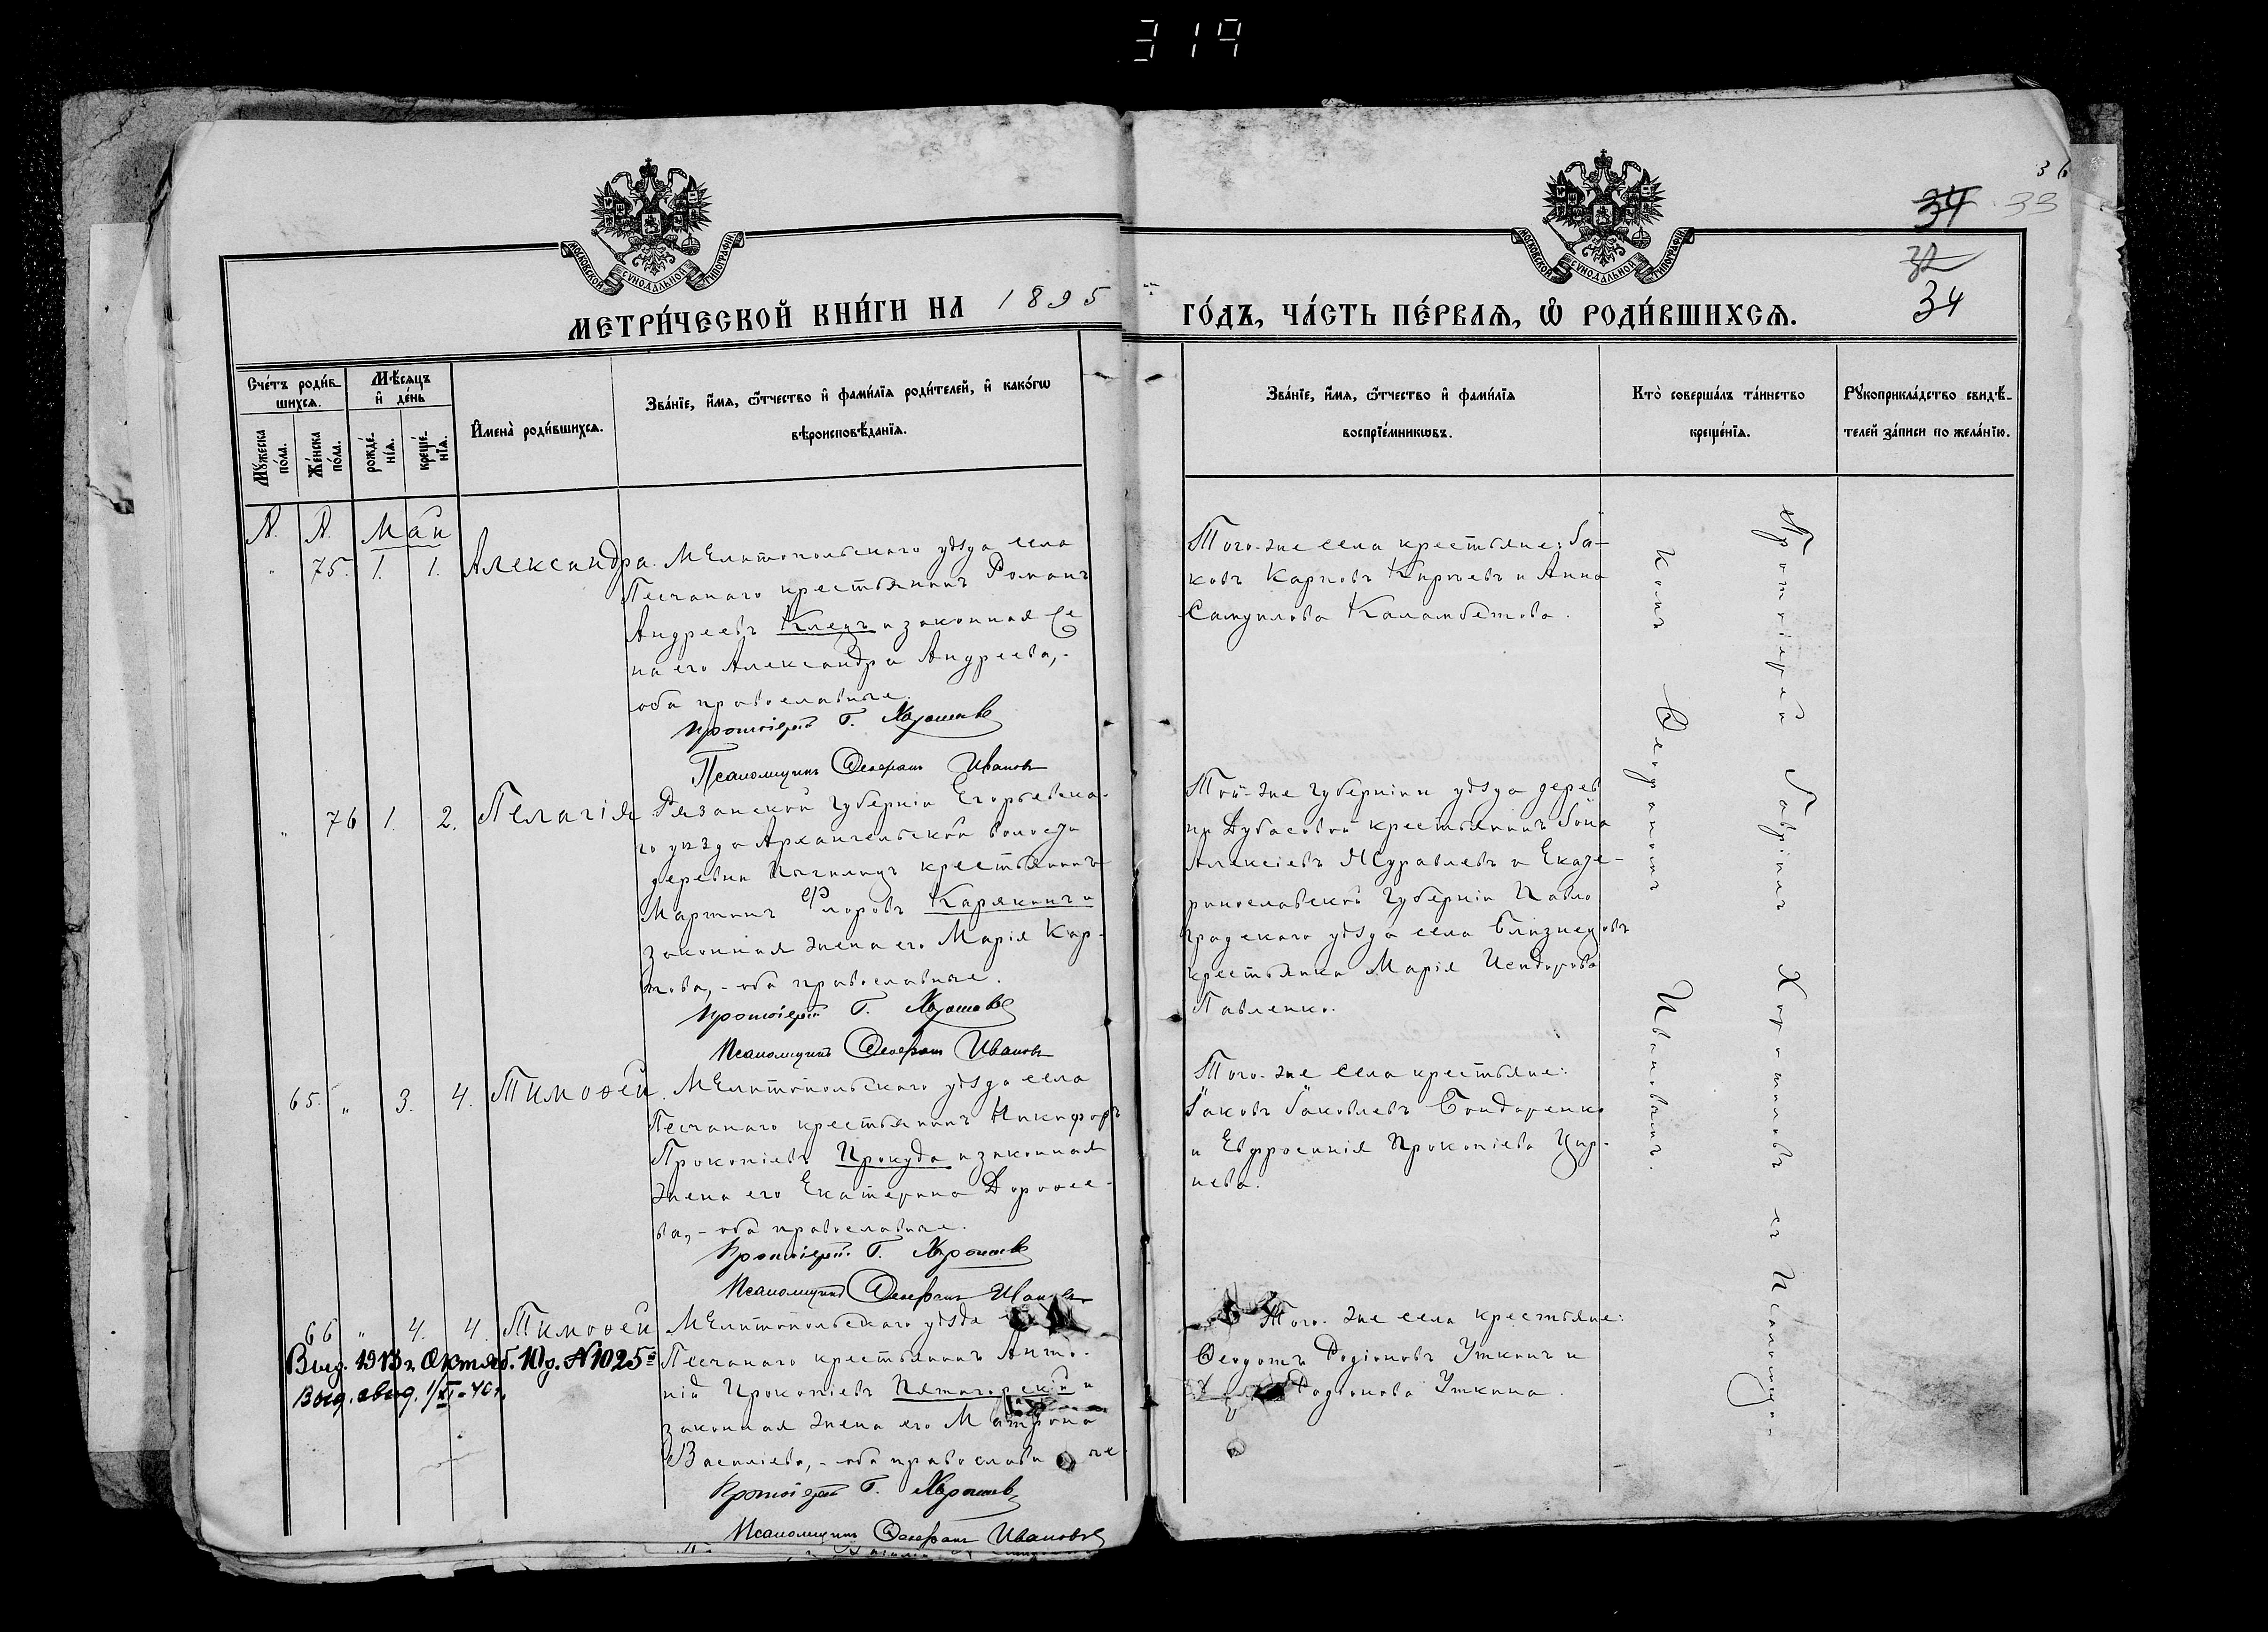 319
36
34 33
32
34
МОСКОВСКОЙ СУНОДАЛЬНОЙ ТИПОГРАФІИ
МОСКОВСКОЙ СУНОДАЛЬНОЙ ТИПОГРАФІИ
МЕТРИ́ЧЕСКОЙ КНИ́ГИ НА 1895
ГО́ДЪ, ЧА́СТЬ ПЕ́РВАЯ, Ѡ РОДИ́ВШИХСЯ.
Сче́тъ роди́в-
шихся.
Мѣ́сяцъ
и҆ де́нь
Му́жеска
по́ла.
Же́нска
по́ла.
рожде́-
нїѧ.
креще́-
нїѧ.
И҆мена̀ роди́вшихся.
Зва́нїе, и҆́мя, ѻ҆́тчество и҆ фами́лїя роди́телей, и҆ како́гѡ
вѣроисповѣ́данїя.
Зва́нїе, и҆́мя, ѻ҆́тчество и҆ фами́лїя
воспрїе́мникѡвъ.
Кто̀ соверша́лъ та́инство
креще́нїя.
Рꙋкоприкла́дство свидѣ́-
телей за́писи по жела́нїю.
М. Ж. Май
" 75. 1. 1. Александра. Мелитопольскаго уѣзда села
Песчанаго крестьянинъ Романъ
Андреевъ Клецъ и законная же
на его Александра Андреева,-
оба православные.
Протоіерей Г.
Псаломщикъ Ѳеофанъ Ивановъ
Того-же села крестьяне: Іа-
ковъ Карповъ Кирѣевъ и Анна
Самуилова Каламбетова.
" 76 1. 2. Пелагія Рязанской губерніи Егорьевска-
го уѣзда Архангельской волости
деревни крестьянинъ
Мартинъ Флоровъ Карякинъ и
законная жена его Марія Кар-
пова,- оба православные.
Протоіерей Г.
Псаломщикъ Ѳеофанъ Ивановъ
Той-же губерніи и уѣзда дерев
ни Дубасовой крестьянинъ Іона
Алексіевъ Журавлевъ и Екате-
ринославской губерніи Павло
градскаго уѣзда села Близнецовъ
крестьянка Марія Исидорова
Павленко.
65. " 3. 4. Тимоѳей. Мелитопольскаго уѣзда села
Песчанаго крестьянинъ Никифоръ
Прокопіевъ Прокуда и законная
жена его Екатерина Дороѳее-
ва,- оба православные.
Протоіерей Г.
Псаломщикъ Ѳеофанъ Ивановъ
Того-же села крестьяне:
Іаковъ Іаковлевъ Бондаренко
и Евфросинія Прокопіева Цир-
нева.
66 " 4. 4. Тимоѳей Мелитопольскаго уѣзда
Песчанаго крестьянинъ Анто-
ній Прокопіевъ Пятигорскій и
законная жена его Матрона
Василіева,- оба православные
Протоіерей Г.
Псаломщикъ Ѳеофанъ Ивановъ
Выд. 1913 г. Октяб. 10 д. № 1025
Выд. свид. 1/XI-40 г.
Того-же села крестьяне:
Ѳеодотъ Родіоновъ Уткинъ и
Родіонова Уткина.
Протоіерей Гавріилъ съ Псаломщи-
комъ Ѳеофаномъ Ивановымъ.